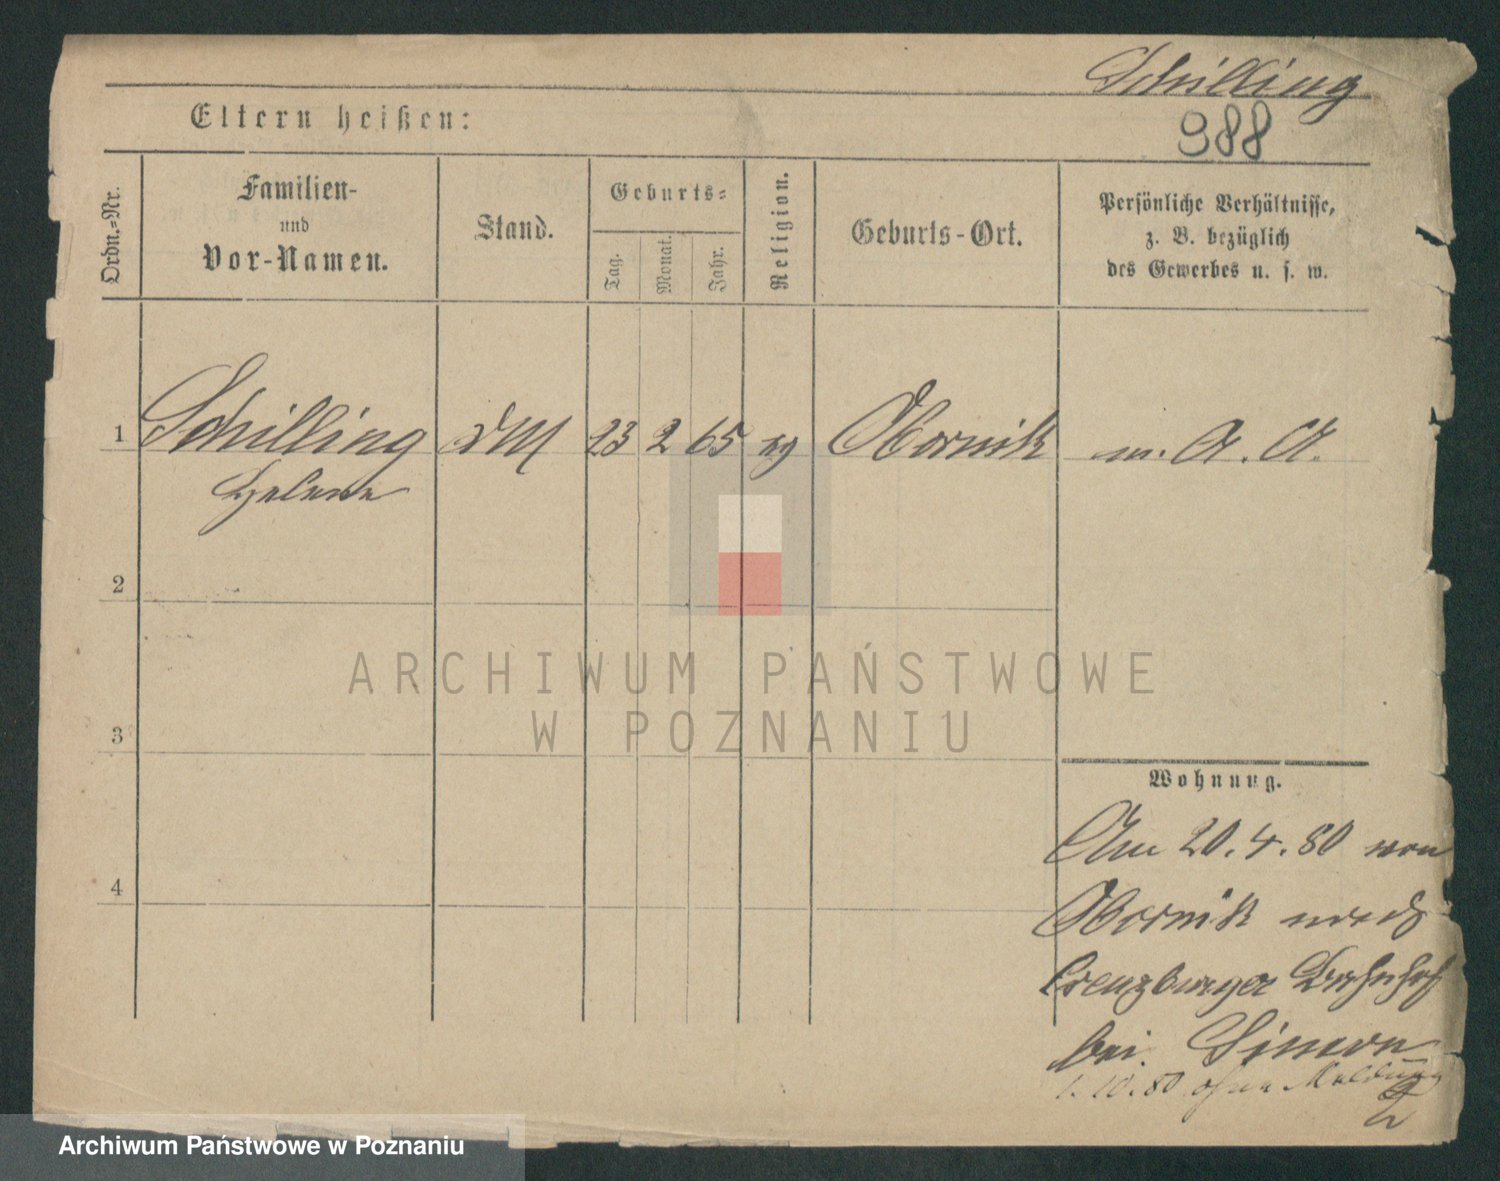 Schilling
988
Eltern heißen:
Ordn.=Nr.
Familien-
und
Vor-Namen.
Stand.
Geburts=
Tag.
Monat.
Jahr.
Religion.
Geburts-Ort.
Persönliche Verhältnisse,
z. B. bezüglich
des Gewerbes u. s. w.
1
Schilling
Helene
DM
23
2
65
Obornik
m. A. A.
2
3
4
ARCHIWUM PAŃSTWOWE
W POZNANIU
Wohnung.
Am 20.4.80 von
Obornik nach
Creuzburger Bahnhof
bei Simon
1.10.80 ohne Meldung
Archiwum Państwowe w Poznaniu